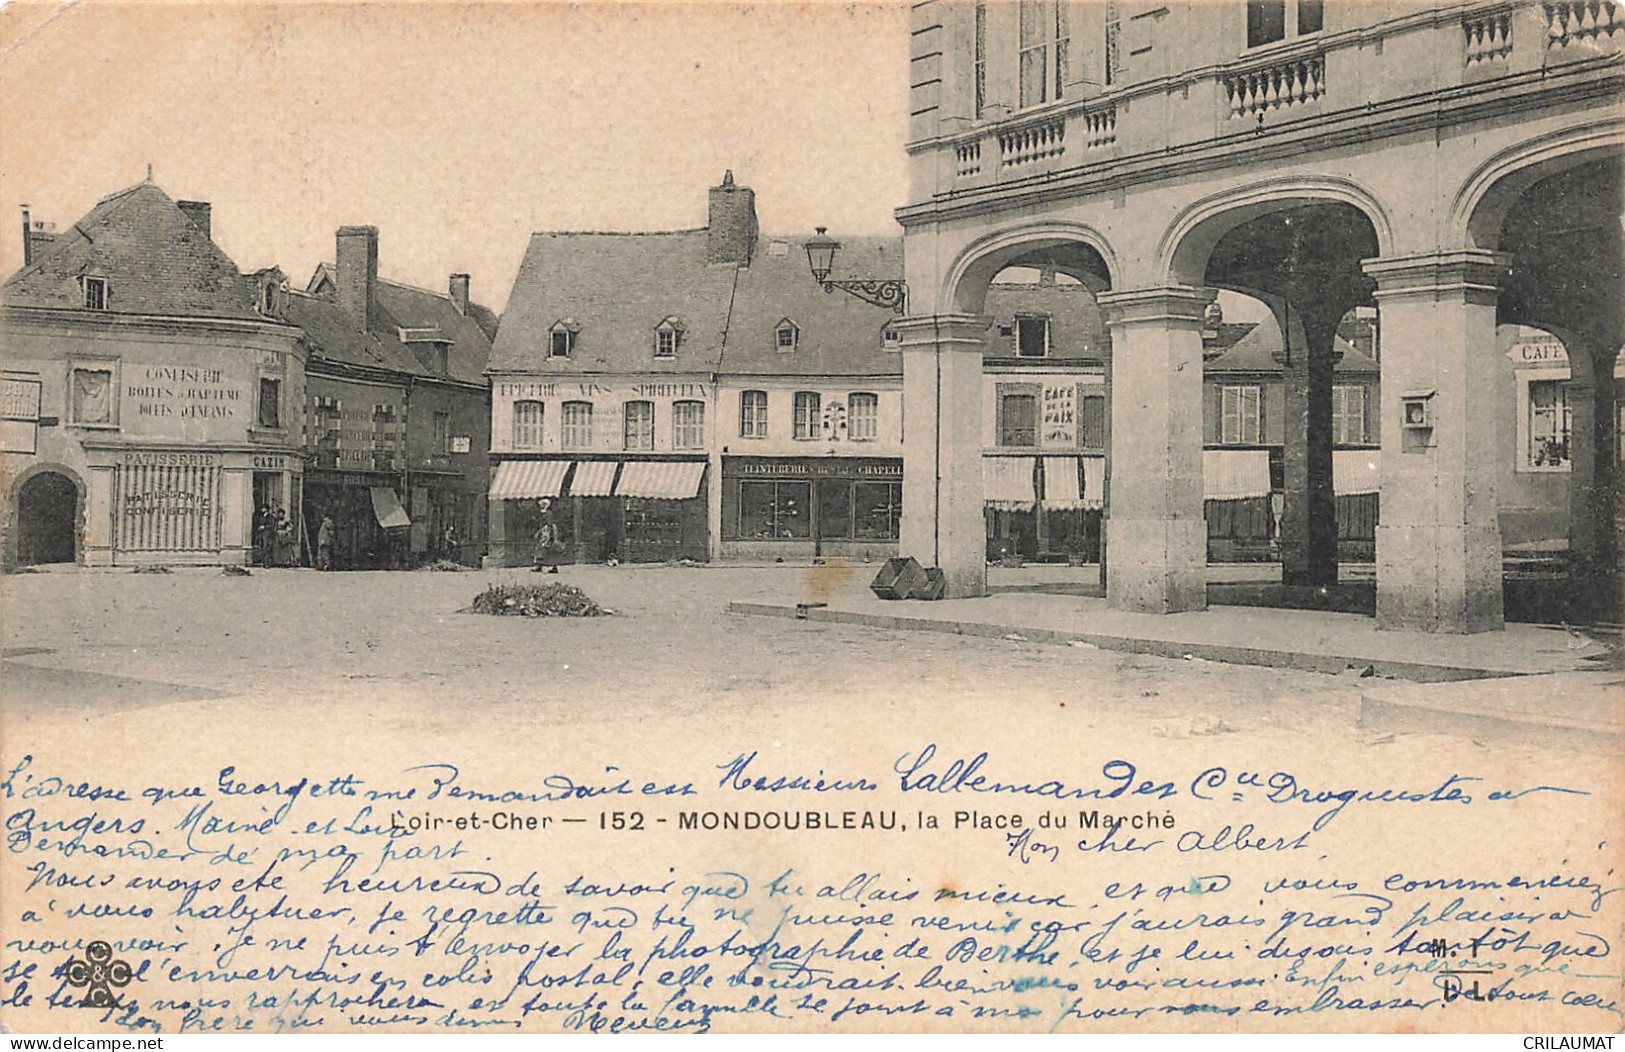 CONFISERIE
BOITES de BAPTEME
JOUETS D'ENFANTS
PATISSERIE
CAZIN
PATISSERIE
CONFISERIE
EPICERIE VINS SPIRITUEUX
TEINTURERIES CHAPELL
CAFÉ
DE LA
PAIX
CAFÉ
L'adresse que Georgette me Demandait est Messieurs Lallemandet Cie Droguistes a
Angers. Maine et Loire
Loir-et-Cher — 152 - MONDOUBLEAU, la Place du Marché
Demander de ma part.
Mon cher Albert
Nous avons été heureux de savoir que tu allais mieux et que vous commenciez
à vous habituer, je regrette que tu ne puisse venir car j'aurais grand plaisir a
vous voir. Je ne puis t'envoyer la photographie de Berthe, et je lui disais tantôt que
je t'enverrais en colis postal, elle voudrait bien vous voir aussi Enfin espérons que
le temps nous rapprochera et toute la famille se joint à moi pour vous embrasser De tout cœur
Ton frère qui vous aime
C&C
M. T
I. L.
CRILAUMAT